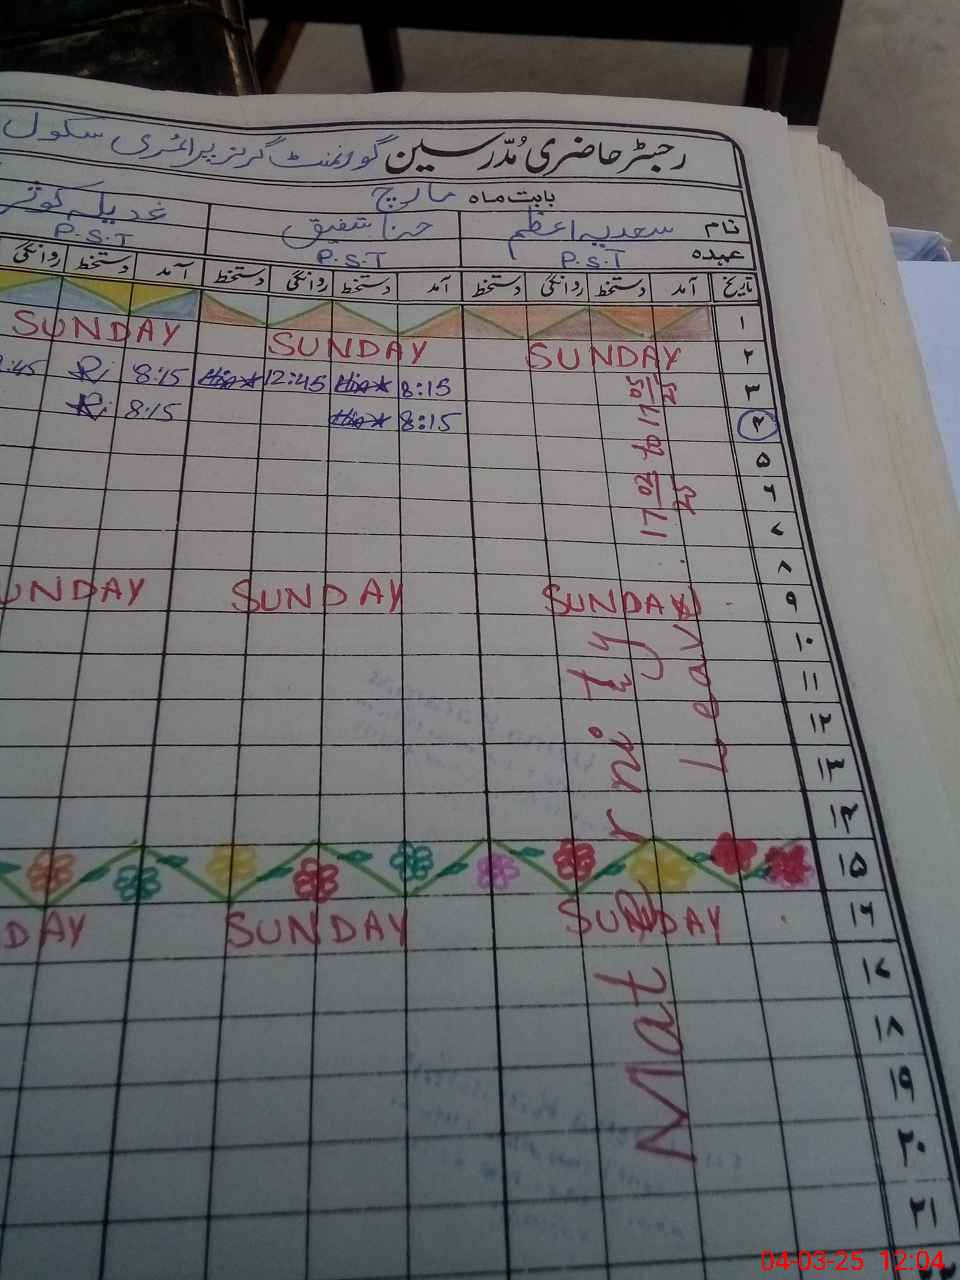 رجسٹر حاضری مُدّرسین گورنمنٹ گرلز پرائمری سکول
بابت ماہ مارچ
نام سعدیہ اعظم حنا شفیق عدیلہ کوثر
عہدہ P.S.T P.S.T P.S.T
تاریخ آمد دستخط روانگی دستخط آمد دستخط روانگی دستخط آمد دستخط روانگی
۱
۲ SUNDAY SUNDAY SUNDAY
۳ 8:15 12:45 8:15 :45
۴ 8:15 8:15
۵
۶
۷
۸
۹ SUNDAY SUNDAY UNDAY
۱۰
۱۱
۱۲
۱۳
۱۴
۱۵
۱۶ SUNDAY SUNDAY DAY
۱۷
۱۸
۱۹
۲۰
۲۱
۲۲
Maternity
Leave
17 02 25 to 17 05 25
04-03-25 12:04